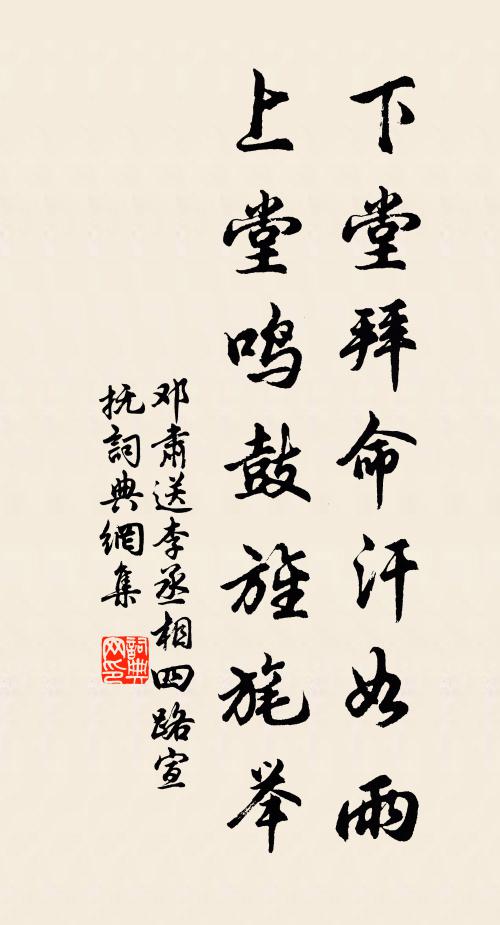 下堂拜命汗如雨
上堂鸣鼓旌旄举
邓肃送李丞相四路宣
抚詞典網集
詞典网印